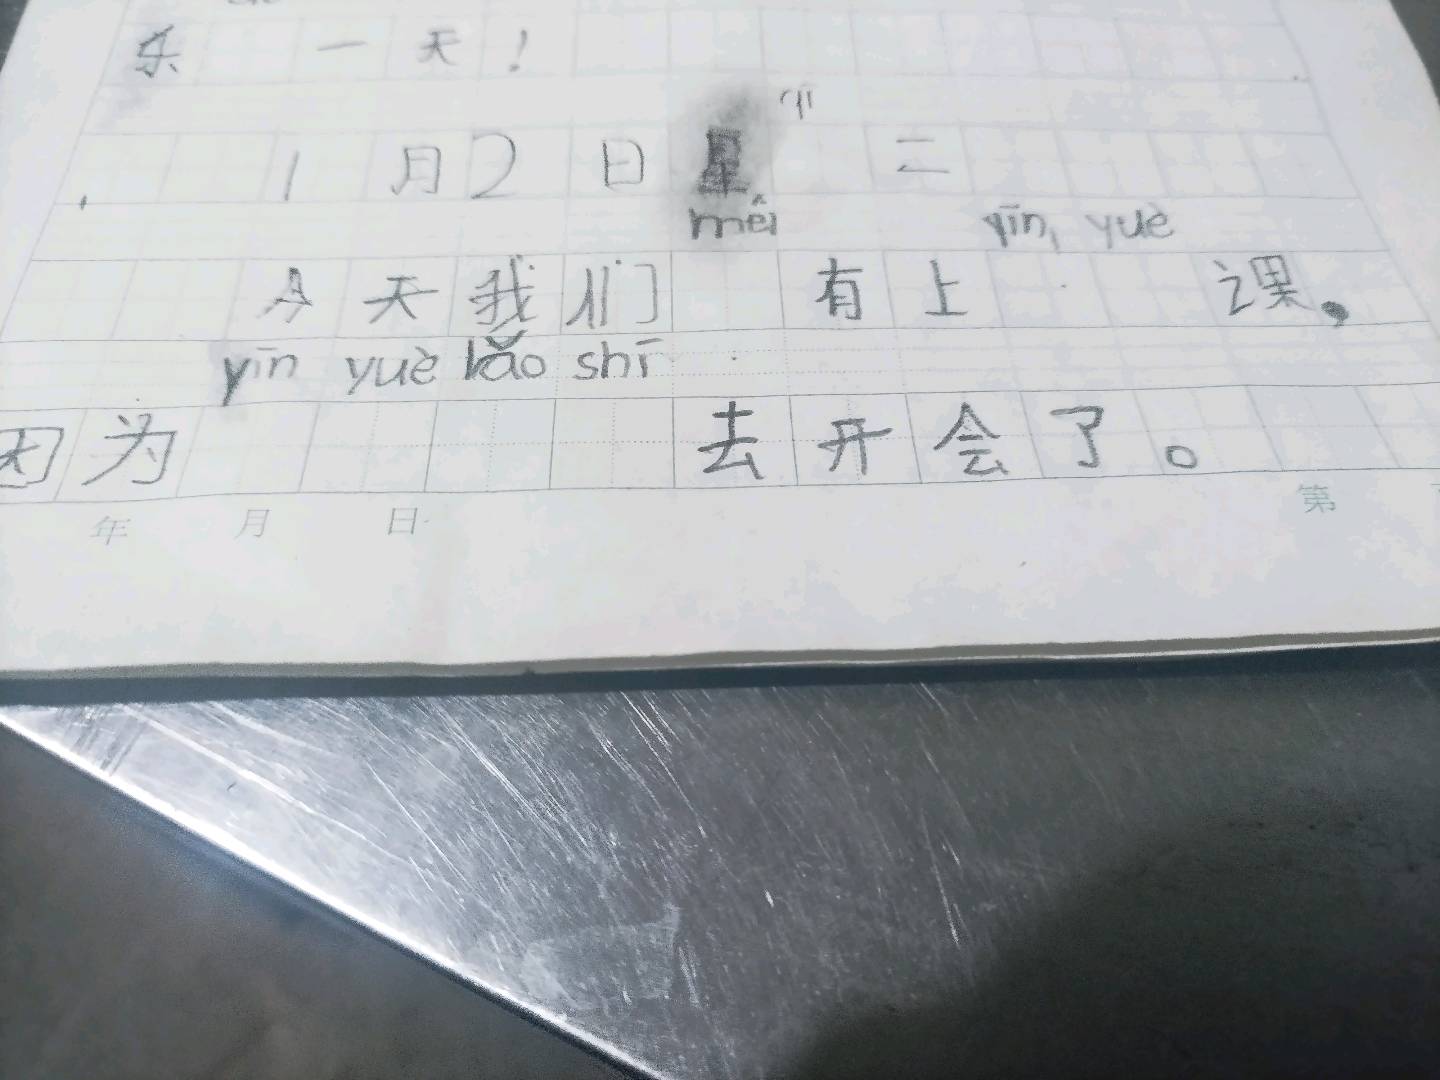 乐一天！
qī
1月2日星 二
méi yīn yuè
今天我们 有上 课，
yīn yuè lǎo shī
因为 去开会了。
年 月 日 第